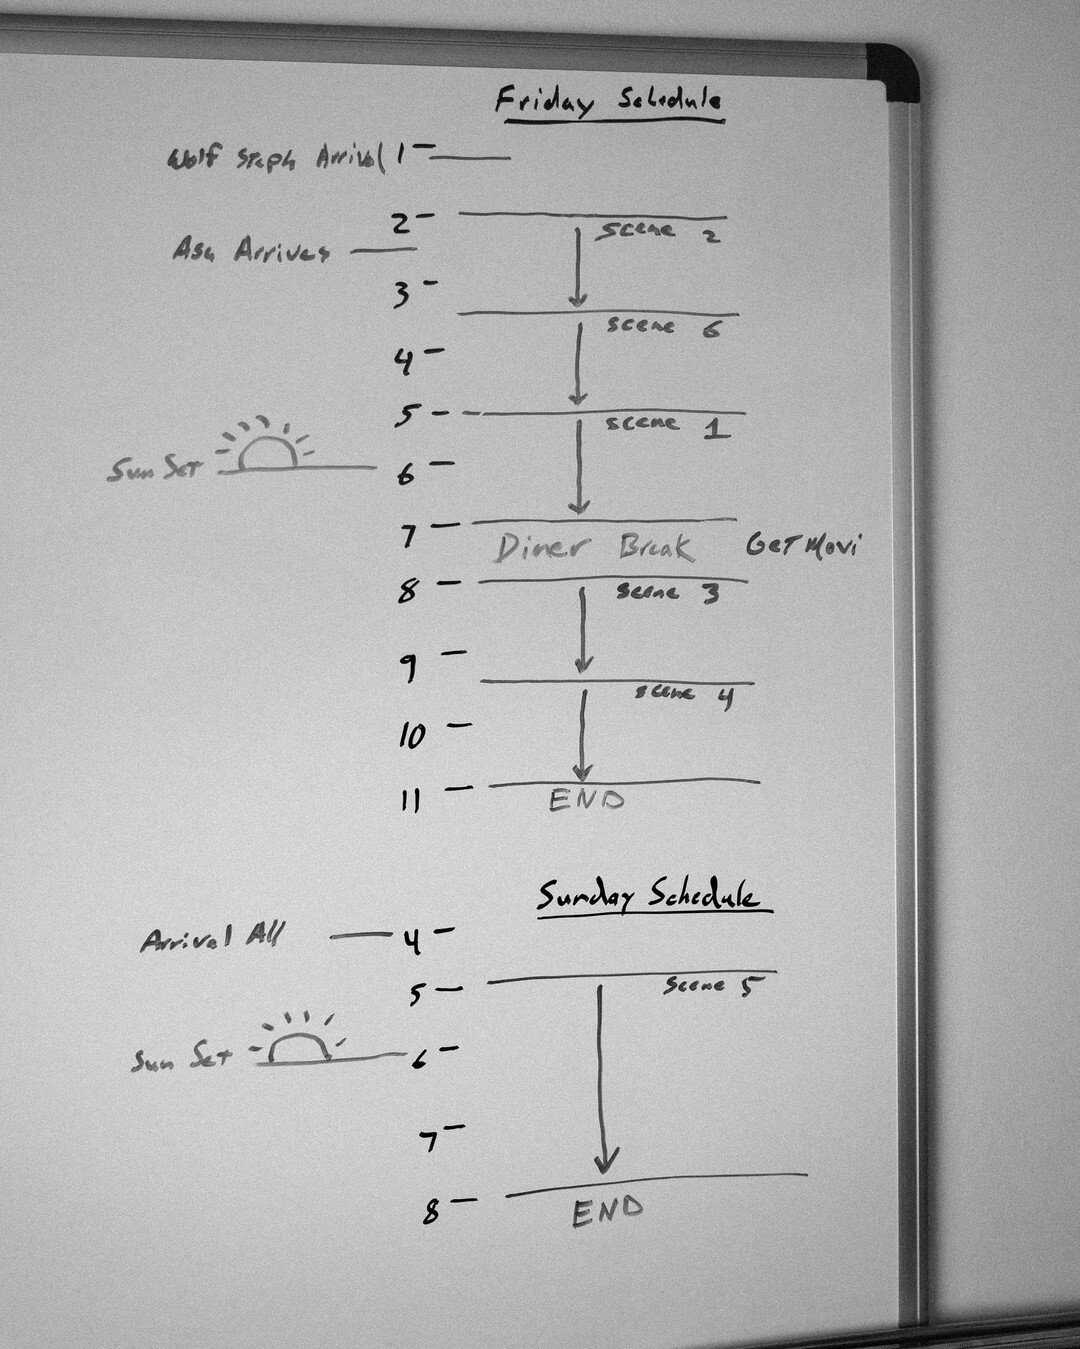 Friday Schedule
Wolf Steph Arrival 1
2
scene 2
Asa Arrives
3
scene 6
4
5
scene 1
Sun Set
6
7
Diner Break GeT Movi
8
scene 3
9
scene 4
10
11
END
Sunday Schedule
Arrival All 4
5
scene 5
Sun Set 6
7
8
END